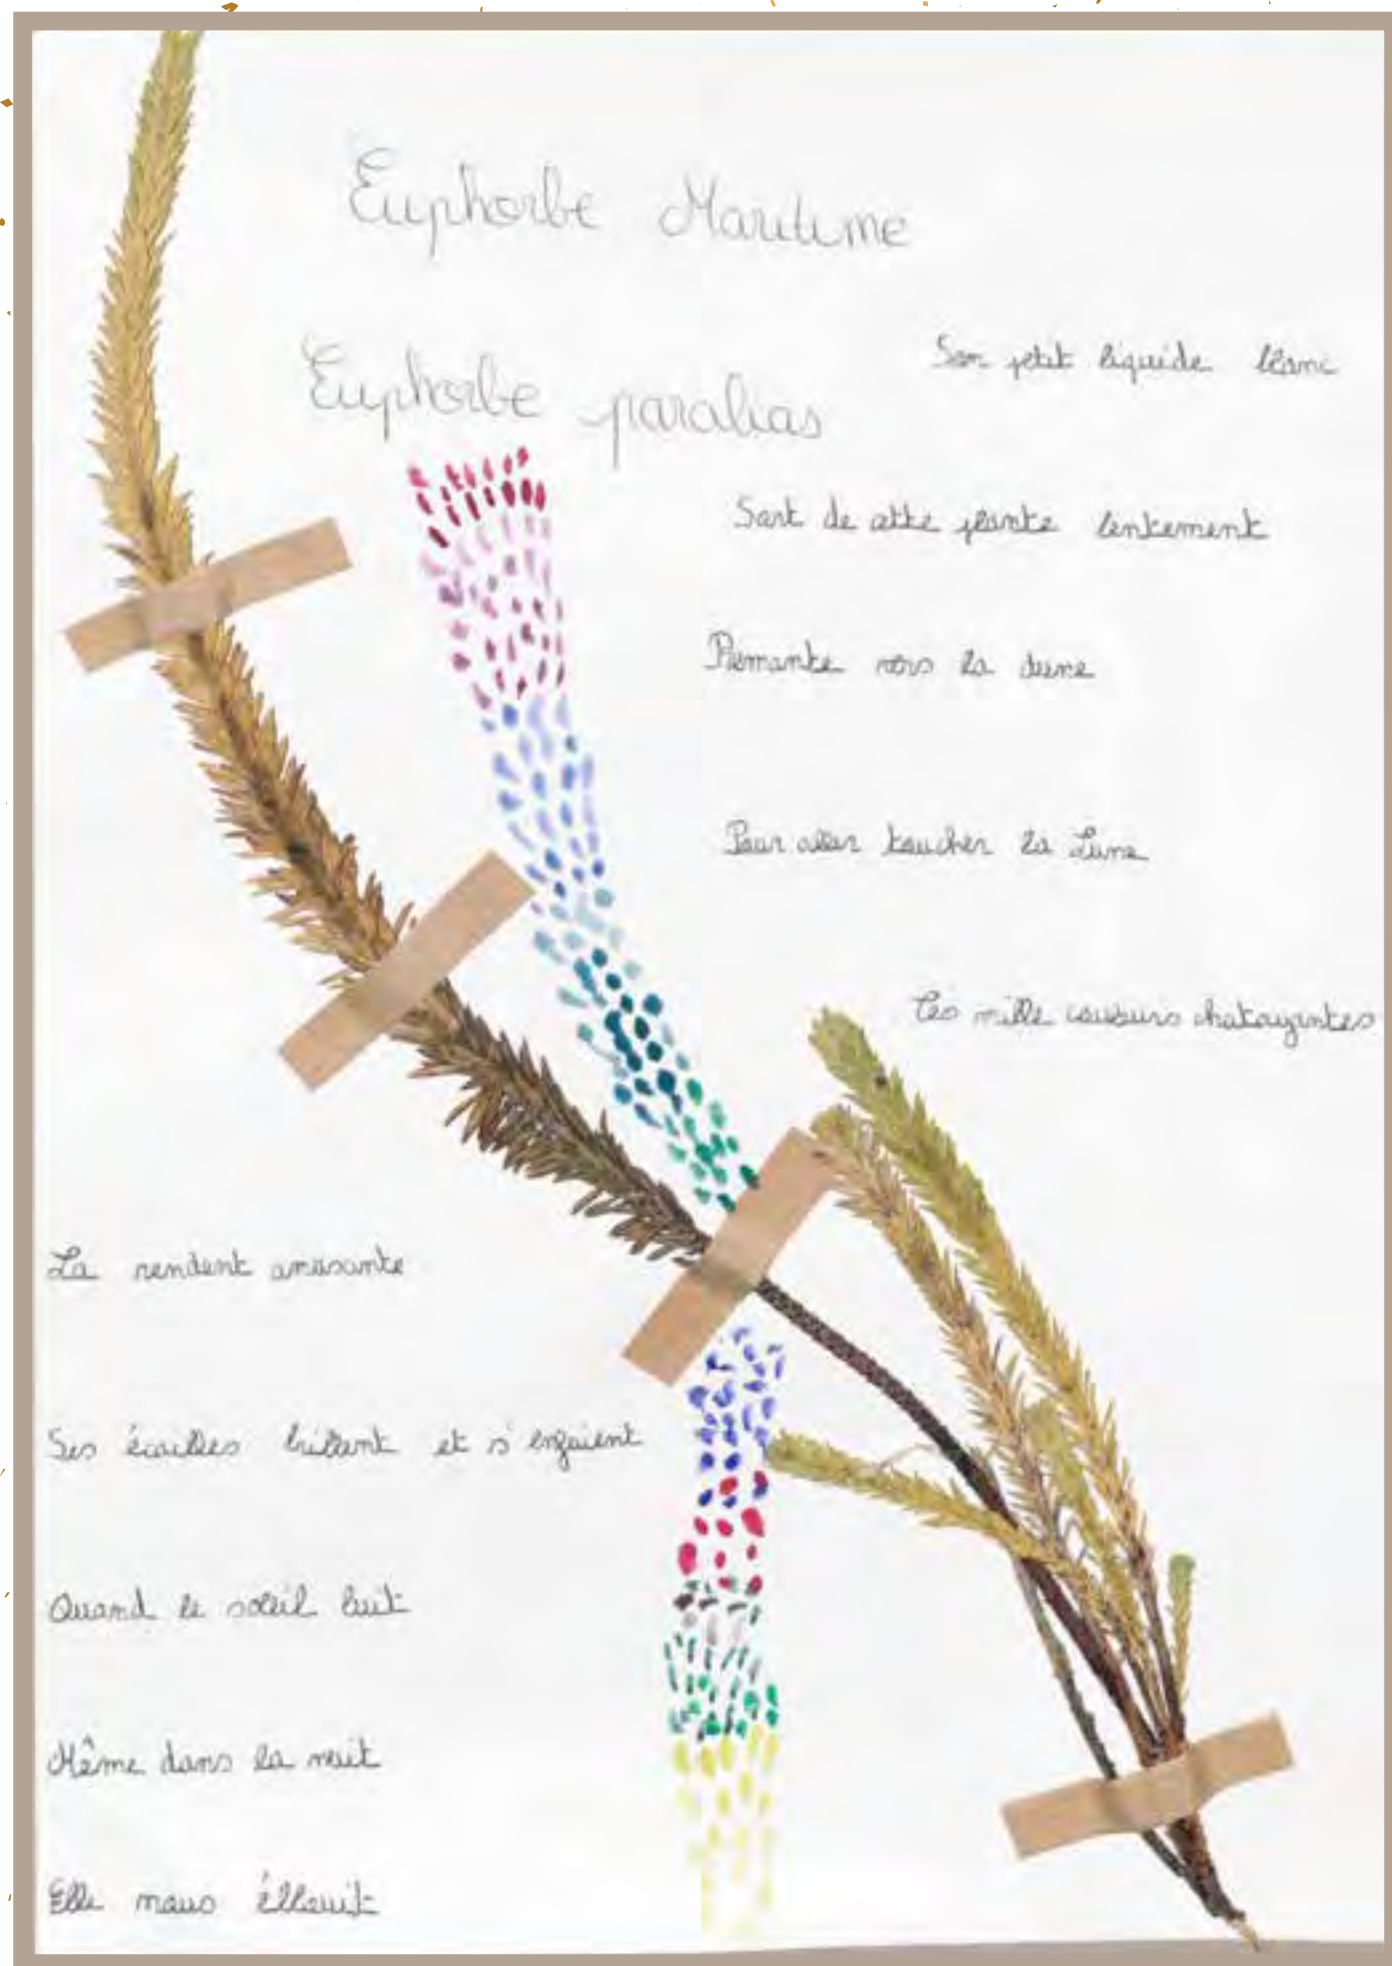 Euphorbe Maritime
Euphorbe paralias
Son petit liquide blanc
Sort de cette plante lentement
Rémante vers la dune
Pour aller toucher la Lune
Ces mille couleurs chatoyantes
La rendent amusante
Ses écailles brillent et s'enfuient
Quand le soleil luit
Même dans la nuit
Elle nous éblouit